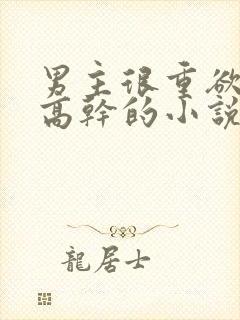 男主很重欲
高幹的小説
龍居士